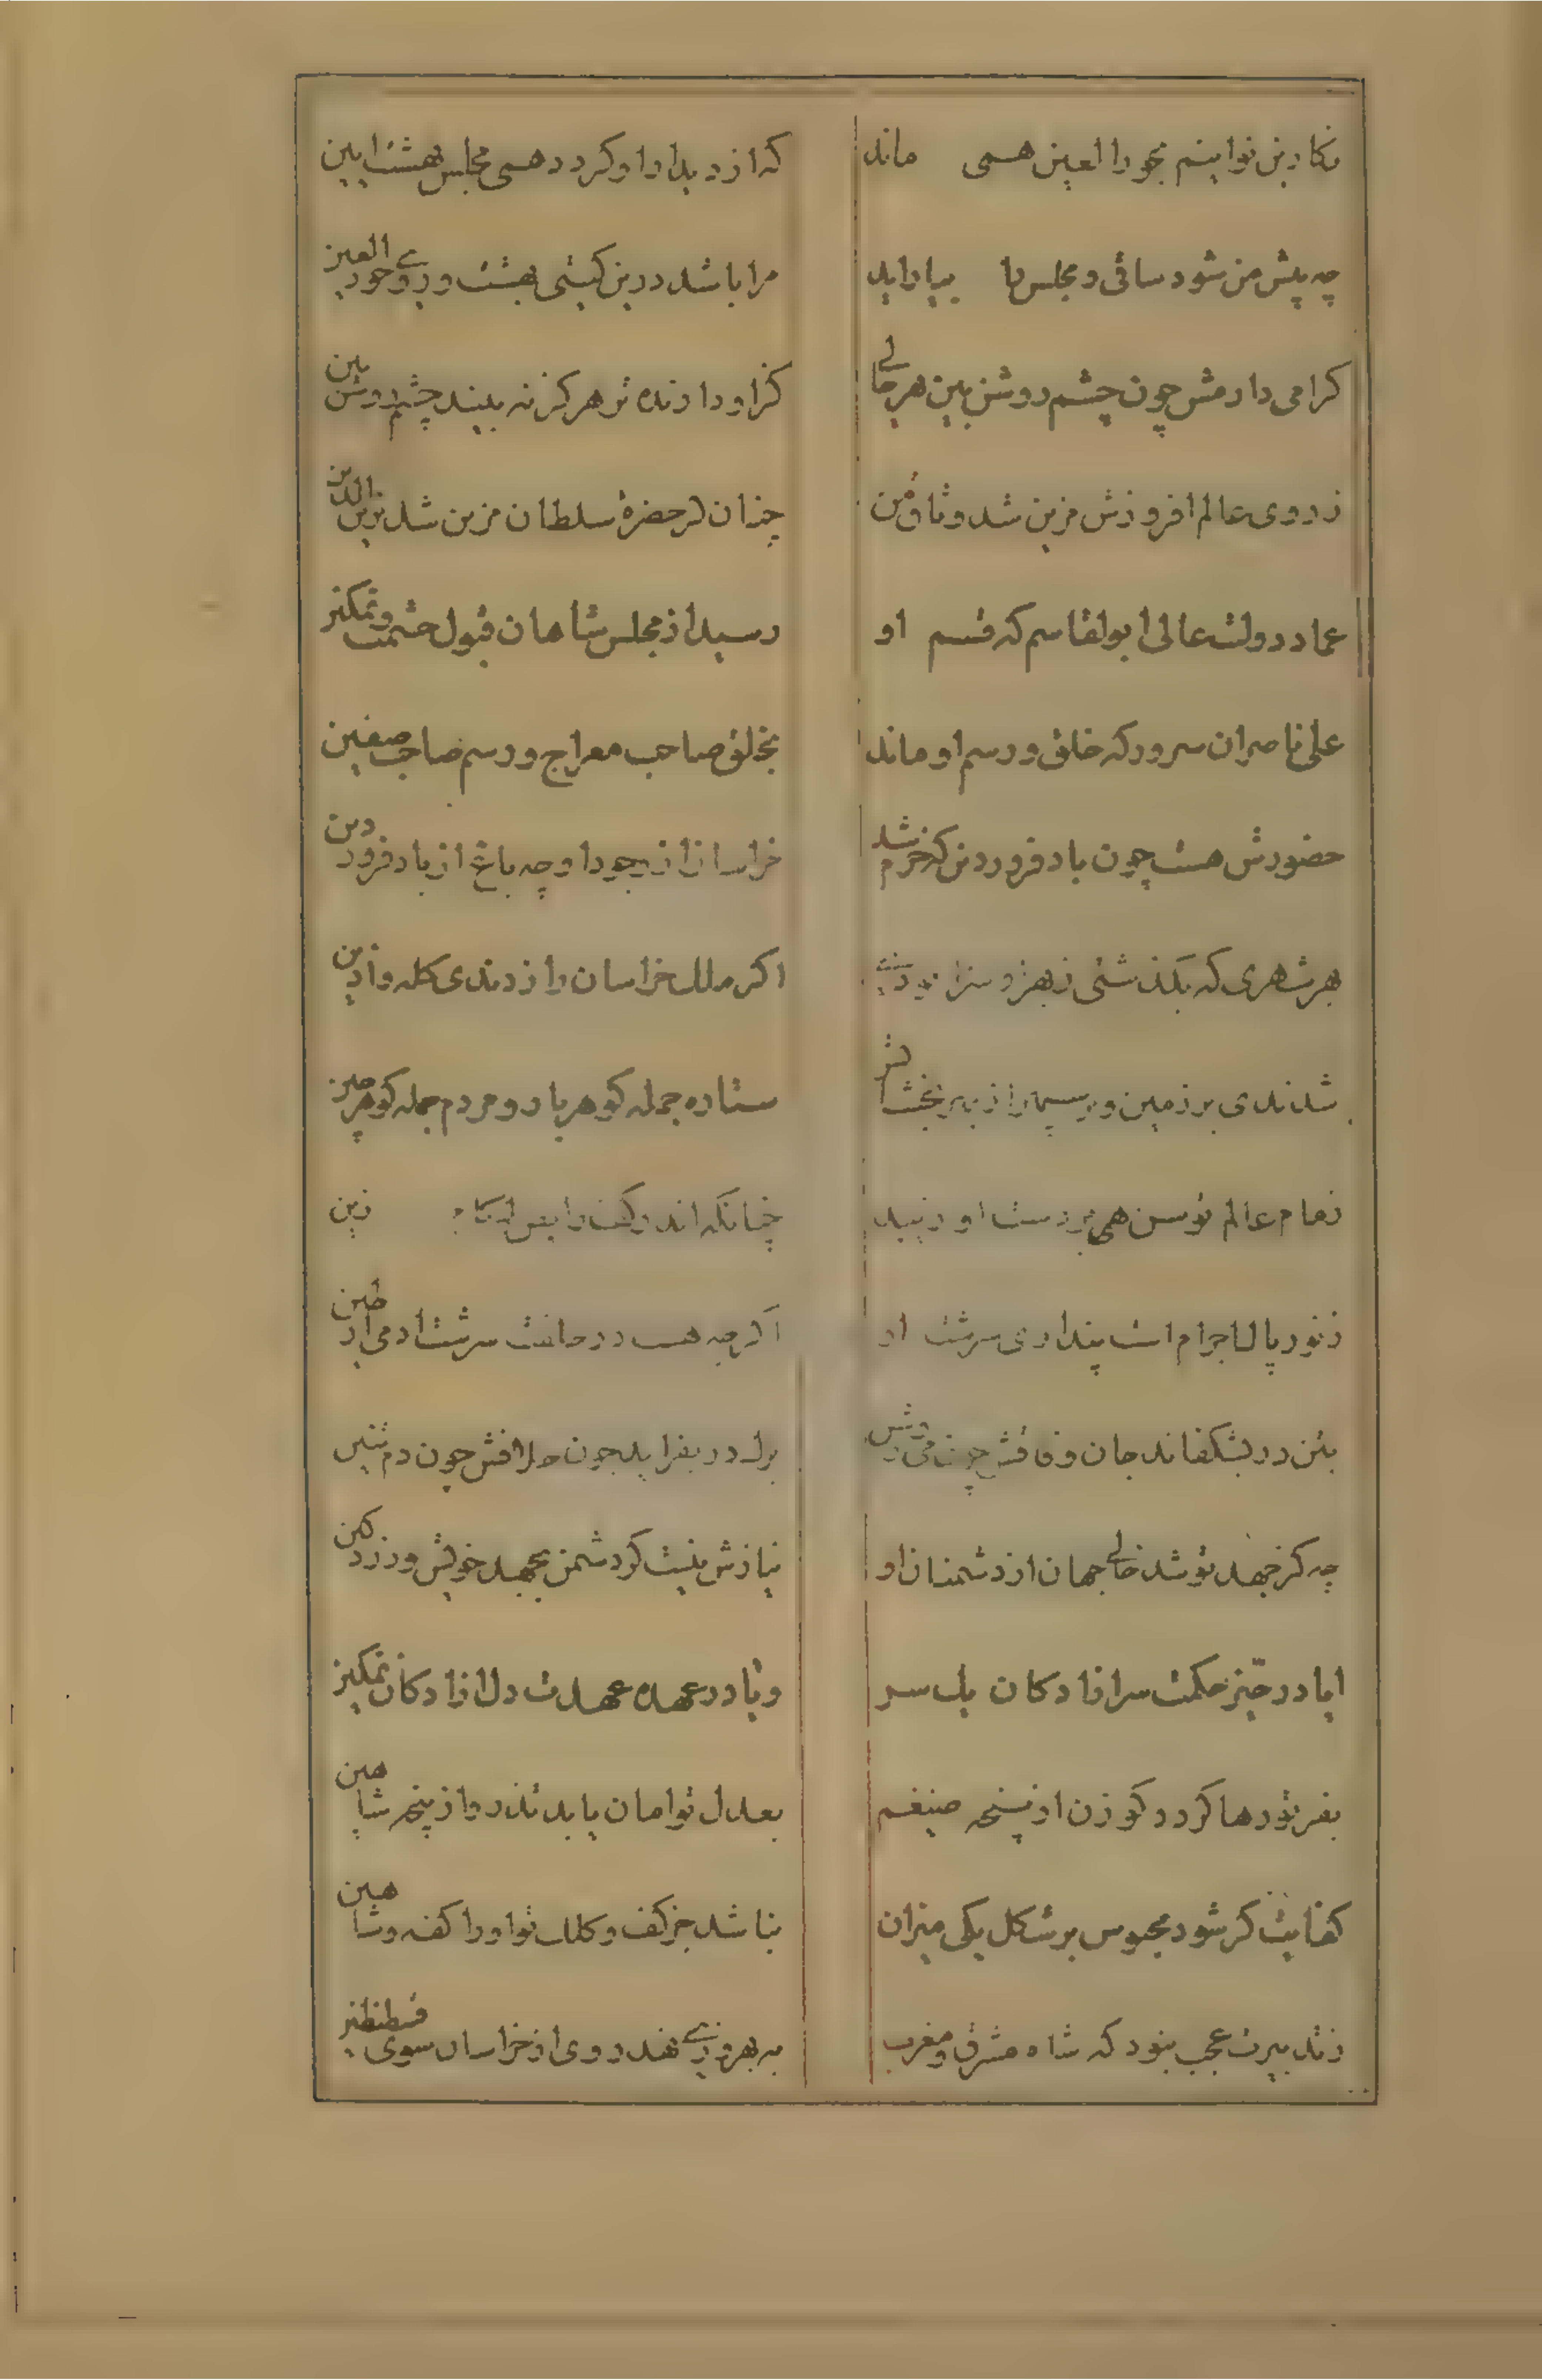 نکارین توا ینم بحورا العین همی ماند که از دیدار او کردد همی مجلس بهشت ایین
چه پیش من شود ساقی و مجلس ما بیاراید مرا باشد درین کیتی بهشت و روی حور العین
کرامی دارمش چون چشم روشن بین هر جالی کزاو دارنده تر هرکز نه بیند چشم روشن بین
ز روی عالم افروزش مزین شد وثاق من چنان کز حضرة سلطان مزین شد الدین
عماد دولت عالی ابو لقاسم که قسم او رسید از مجلس شاهان قبول حشمت و تمکین
علی ناصر ان سرور که خلق و رسم او ماند بخلق صاحب معراج و رسم صاحب صفین
حضورش هست چون باد فروردین کزو خرم شد خراسان از وجود او چه باغ از باد فروردین
بهر شهری که بکذشتی ز بهر اکر ملک خراسان را زدندی کله و اذین
شدندی بر زمین و بر ستاده جمله کوهر بار و مردم جمله کوهر چین
زمام عالم توسن همی بر دست او زیبد چنانکه اندر زین
ز نور پاک اجرام است پنداری سرشت او اکر چه هست در خلقت سرشت ادمی از طین
بتن در بشکفاند جان وفاقش چون بدل در بفزاید چون خلافش چون دم تنین
چه کز جهد تو شد خالی جهان از دشمنان او نیازش نیست کرد شمن بجهد خویش ورزد کین
ایا در حیز حکمت سر ازادکان یک سر ویا در عهده عهدت دل ازادکان تمکین
بفر تو رها کردد کوزن از پنجه ضیغم بعدل تو امان یابد تذرو از پنجه شاهین
کفایت کر شود محبوس بر شکل یکی میزان نباشد جز کف و کلک تو او را کفه و شاهین
ز تدبیرت عجب نبود که شاه مشرق و مغرب به بهروزی نهد روی از خراسان سوی قسطنطین